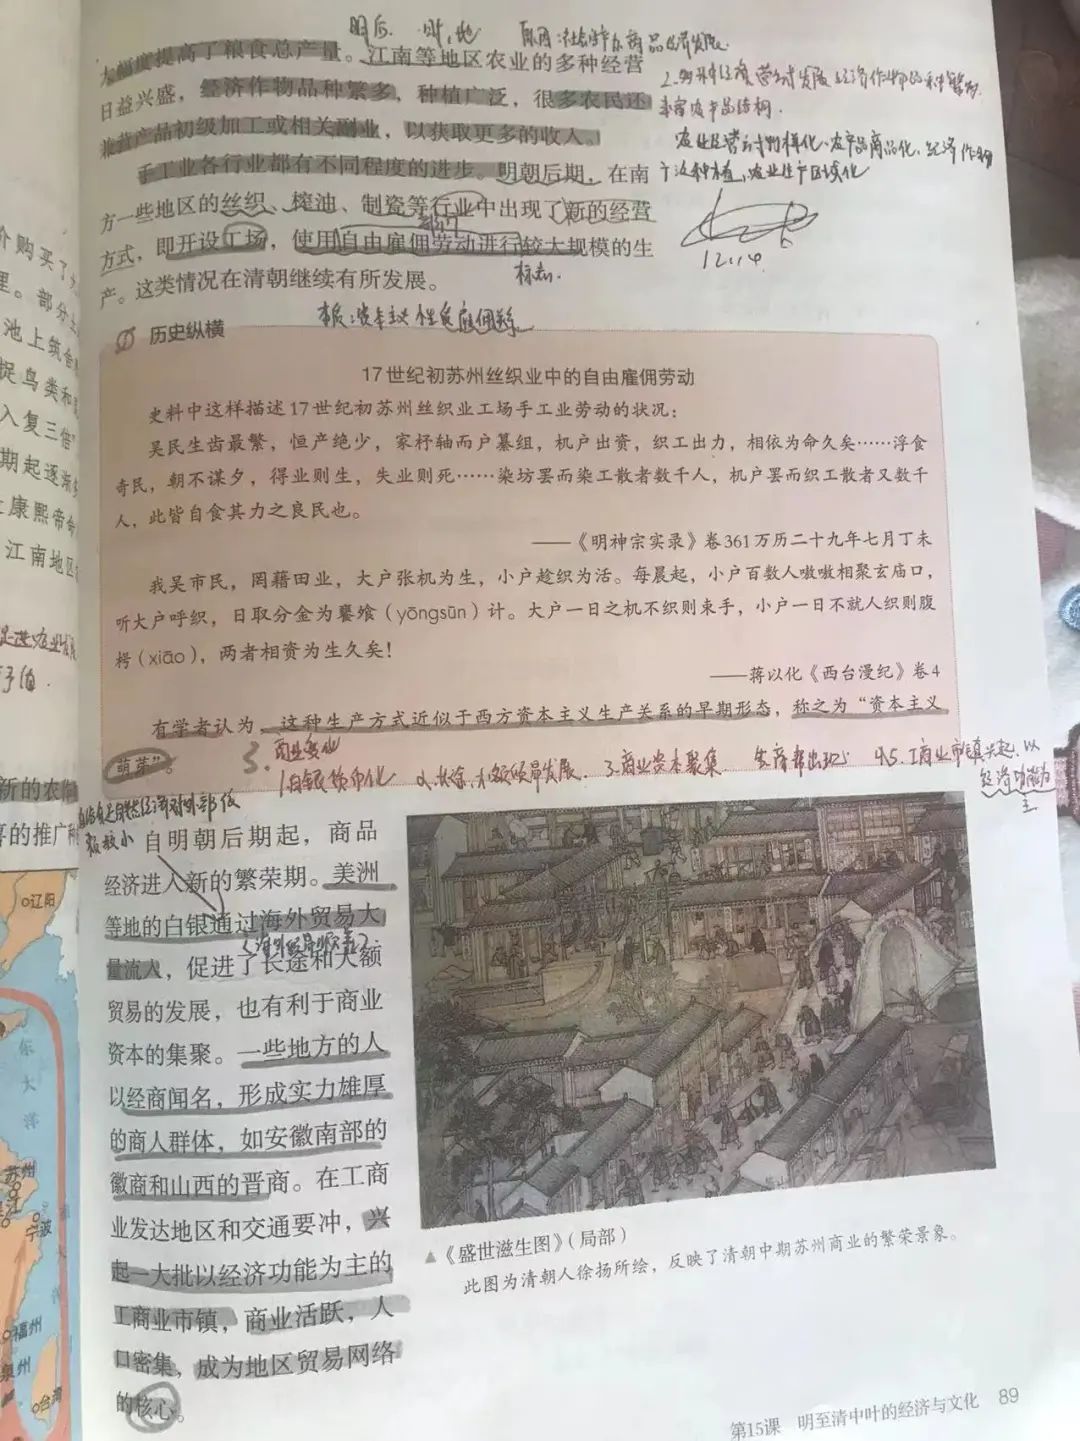 明后. 时,地 原因:社会生产
大幅度提高了粮食总产量。江南等地区农业的多种经营
日益兴盛,经济作物品种繁多,种植广泛,很多农民还
兼营产品初级加工或相关副业,以获取更多的收入。
手工业各行业都有不同程度的进步。明朝后期,在南
方一些地区的丝织、榨油、制瓷等行业中出现了新的经营
方式,即开设工场,使用自由雇佣劳动进行较大规模的生
产。这类情况在清朝继续有所发展。
丰富农产品结构.
农业经营方式多样化、农产品商品化、经济作物
广泛种植,农业生产区域化
12.14.
标志.
本质:资本主义性质雇佣关系
历史纵横
17世纪初苏州丝织业中的自由雇佣劳动
史料中这样描述17世纪初苏州丝织业工场手工业劳动的状况:
吴民生齿最繁,恒产绝少,家杼轴而户纂组,机户出资,织工出力,相依为命久矣……浮食
奇民,朝不谋夕,得业则生,失业则死……染坊罢而染工散者数千人,机户罢而织工散者又数千
人,此皆自食其力之良民也。
——《明神宗实录》卷361万历二十九年七月丁未
我吴市民,罔藉田业,大户张机为生,小户趁织为活。每晨起,小户百数人嗷嗷相聚玄庙口,
听大户呼织,日取分金为饔飧(yōngsūn)计。大户一日之机不织则束手,小户一日不就人织则腹
枵(xiāo),两者相资为生久矣!
——蒋以化《西台漫纪》卷4
有学者认为,这种生产方式近似于西方资本主义生产关系的早期形态,称之为“资本主义
萌芽”。
3. 商业变化
1.白银货币化 2.长途、大额贸易发展. 3.商业资本聚集 4.5.工商业市镇兴起,以
经济功能为
主
自明朝后期起,商品
经济进入新的繁荣期。美洲
等地的白银通过海外贸易大
量流入,促进了长途和大额
贸易的发展,也有利于商业
资本的集聚。一些地方的人
以经商闻名,形成实力雄厚
的商人群体,如安徽南部的
徽商和山西的晋商。在工商
业发达地区和交通要冲,兴
起一大批以经济功能为主的
工商业市镇,商业活跃,人
口密集,成为地区贸易网络
的核心。
▲《盛世滋生图》(局部)
此图为清朝人徐扬所绘,反映了清朝中期苏州商业的繁荣景象。
第15课 明至清中叶的经济与文化 89
价购买了
里。部分
池上筑舍
捉鸟类和
入复三倍”
期起逐渐
康熙帝
江南地区
新的农
的推广
辽阳
东
大
洋
苏州
宁波
福州
泉州
台湾